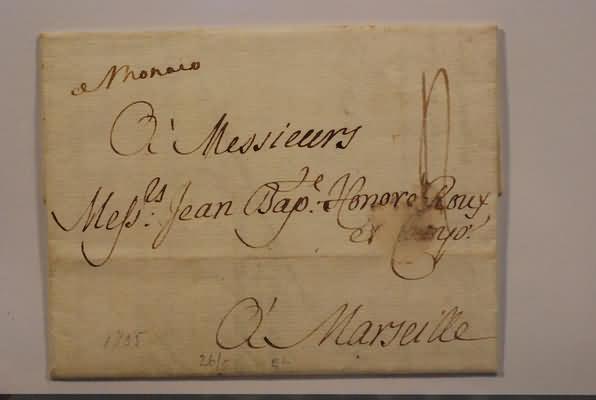 de Monaco
A' Messieurs
Mess.rs Jean Bap.te Honoré Roux
et Comp.
A' Marseille
26/5